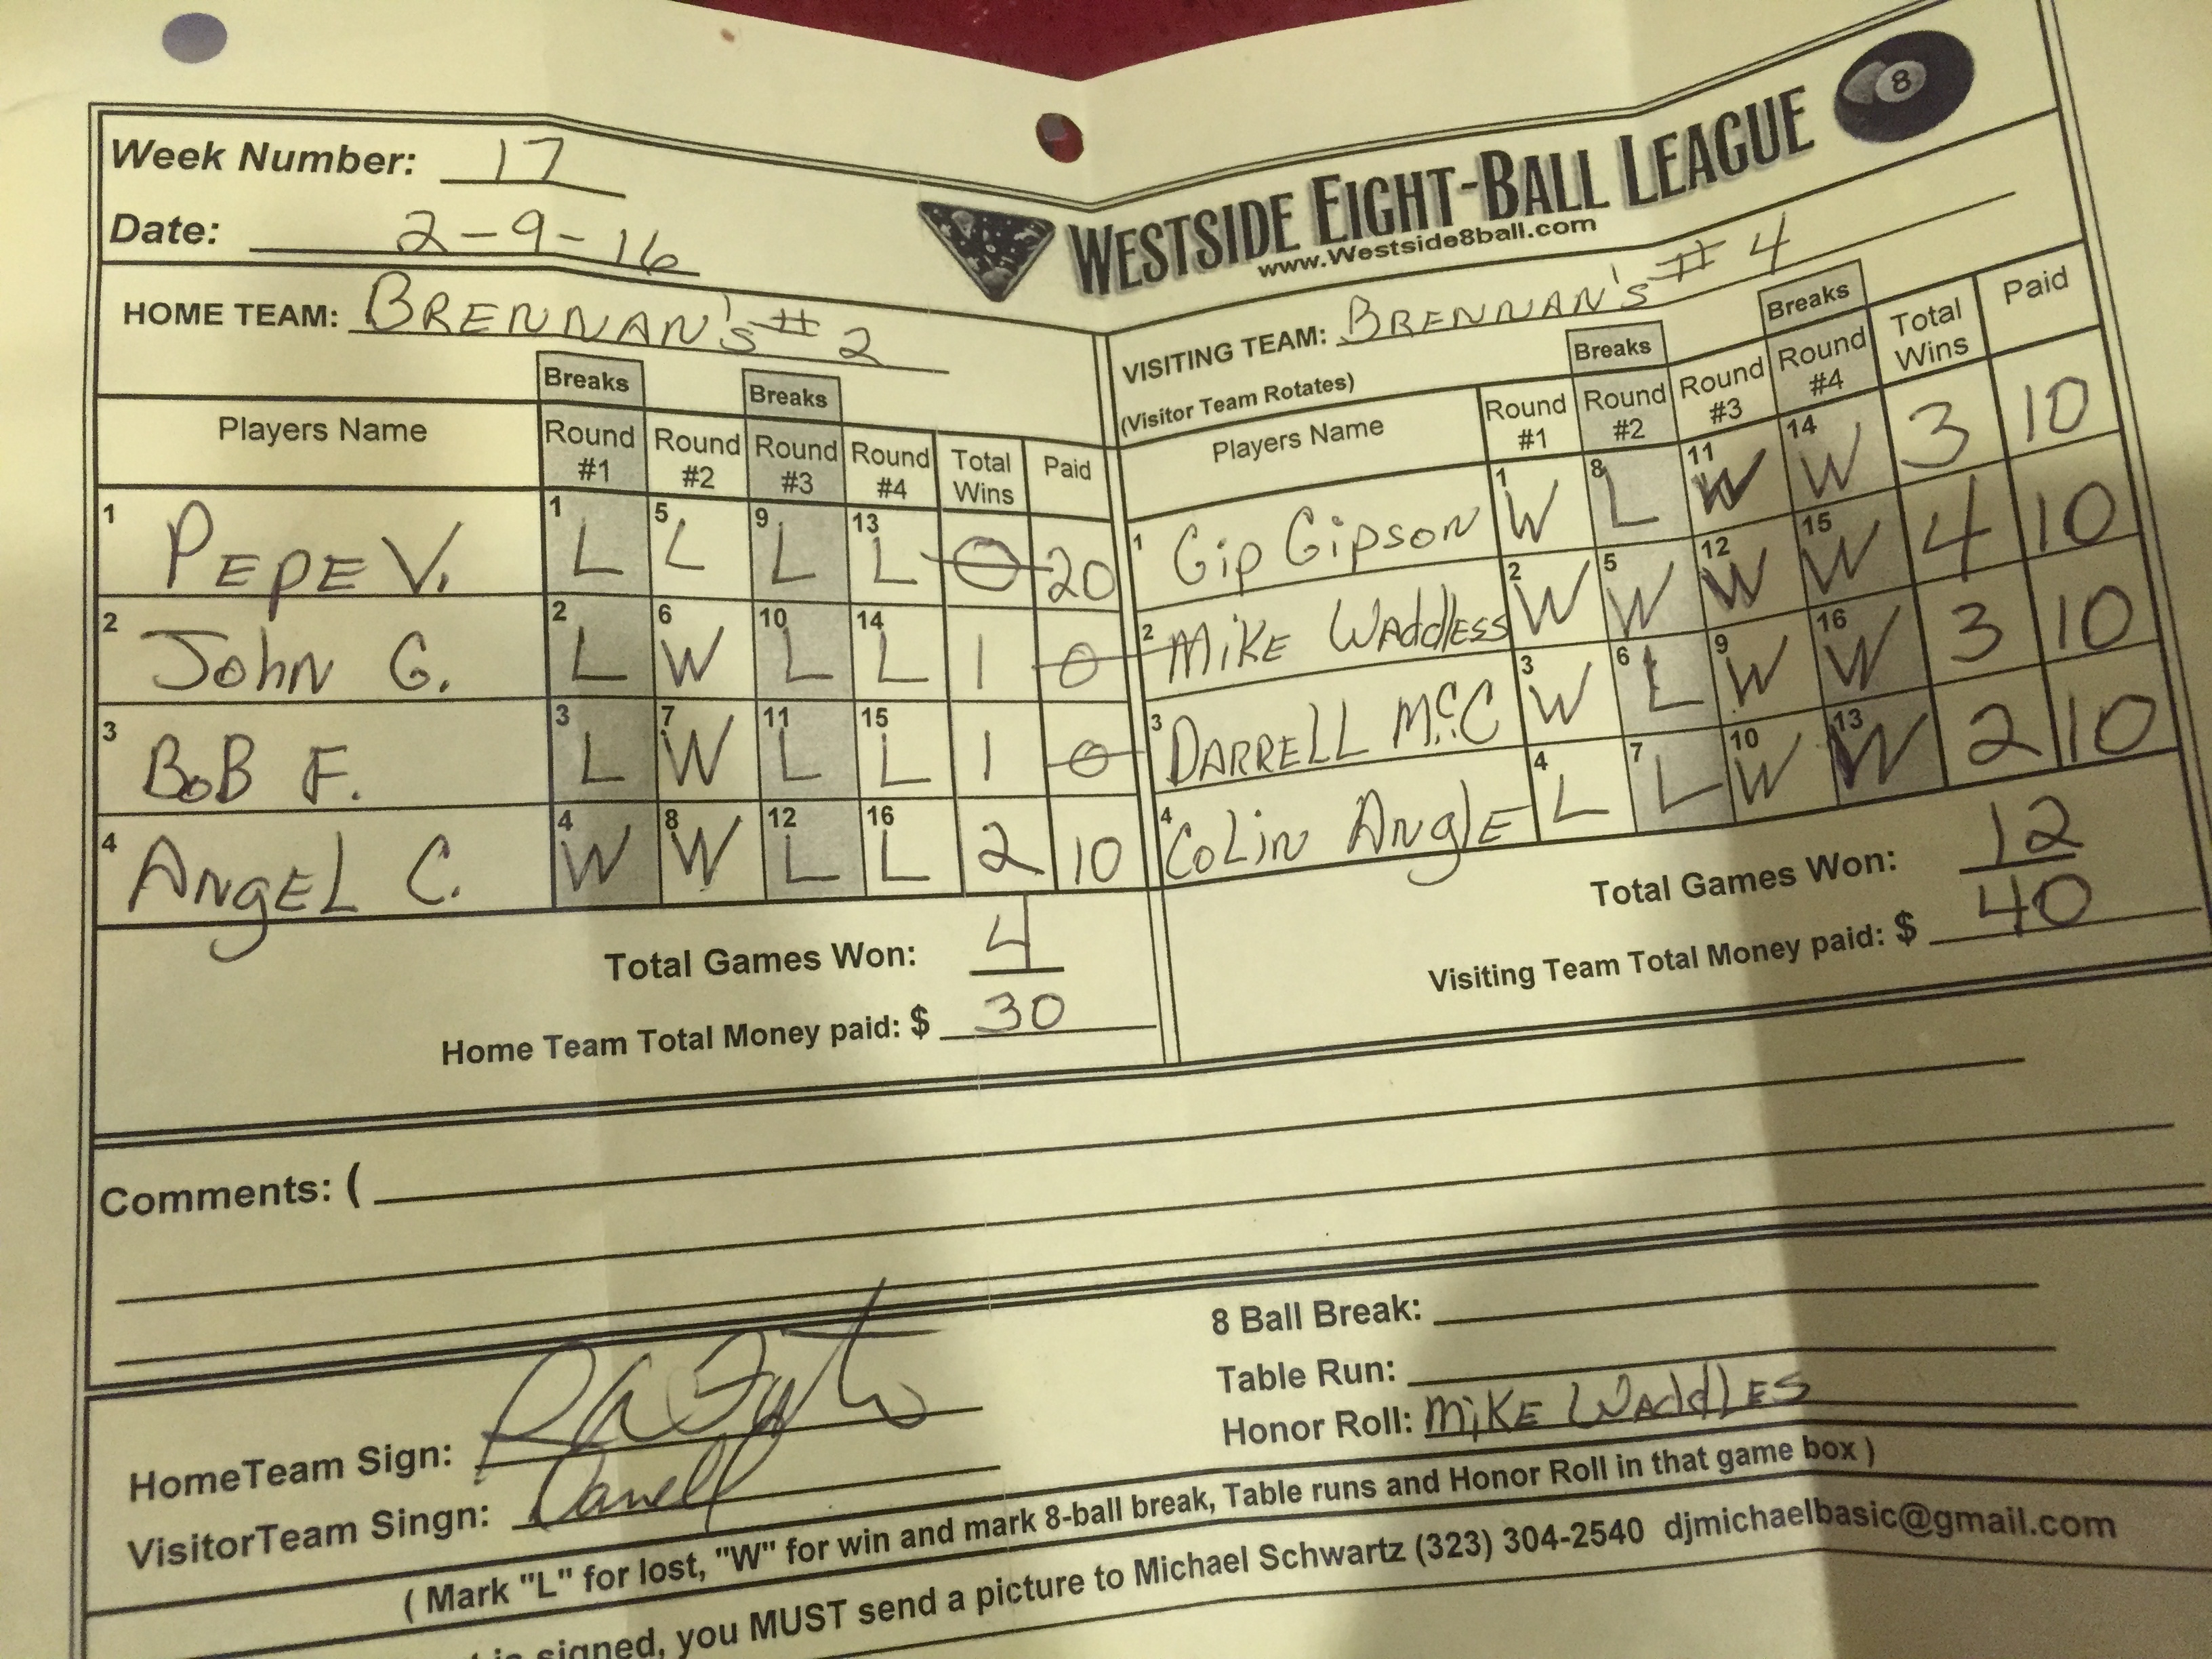 Week Number: 17
Date: 2-9-16
WESTSIDE EIGHT-BALL LEAGUE 8
www.Westside8ball.com
HOME TEAM: BRENNAN's #2
Breaks Breaks
Players Name Round #1 Round #2 Round #3 Round #4 Total Wins Paid
1 PEPE V. 1 L 5 L 9 L 13 L 0 20
2 JOHN G. 2 L 6 W 10 L 14 L 1 0
3 BOB F. 3 L 7 W 11 L 15 L 1 0
4 ANGEL C. 4 W 8 W 12 L 16 L 2 10
Total Games Won: 4
Home Team Total Money paid: $ 30
VISITING TEAM: BRENNAN's #4
(Visitor Team Rotates)
Breaks Breaks
Players Name Round #1 Round #2 Round #3 Round #4 Total Wins Paid
1 Gip Gipson 1 W 8 L 11 W 14 W 3 10
2 MIKE WADDLESS 2 W 5 W 12 W 15 W 4 10
3 DARRELL McC 3 W 6 L 9 W 16 W 3 10
4 COLIN ANGLE 4 L 7 L 10 W 13 W 2 10
Total Games Won: 12
Visiting Team Total Money paid: $ 40
Comments: (
8 Ball Break:
Table Run:
Honor Roll: MIKE WADDLES
HomeTeam Sign:
VisitorTeam Singn: Darrell
( Mark "L" for lost, "W" for win and mark 8-ball break, Table runs and Honor Roll in that game box )
is signed, you MUST send a picture to Michael Schwartz (323) 304-2540 djmichaelbasic@gmail.com